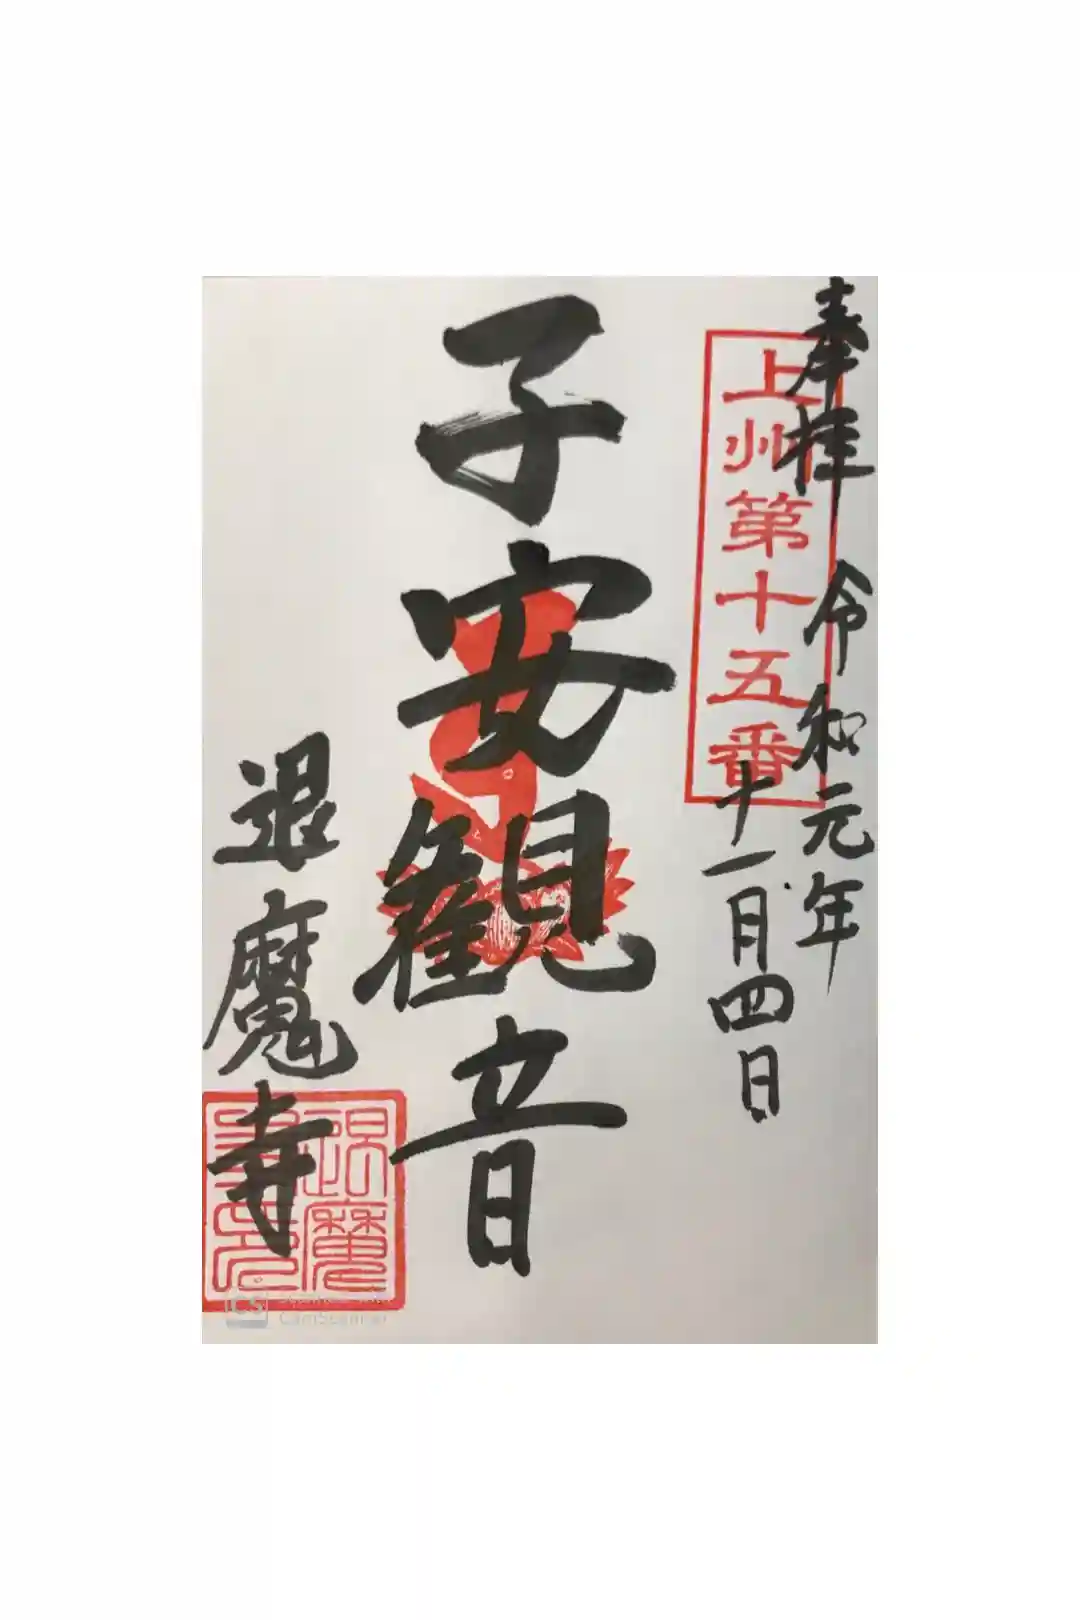 奉拝
令和元年
十一月四日
上州第十五番
子安観音
退魔寺
CS
CamScanner